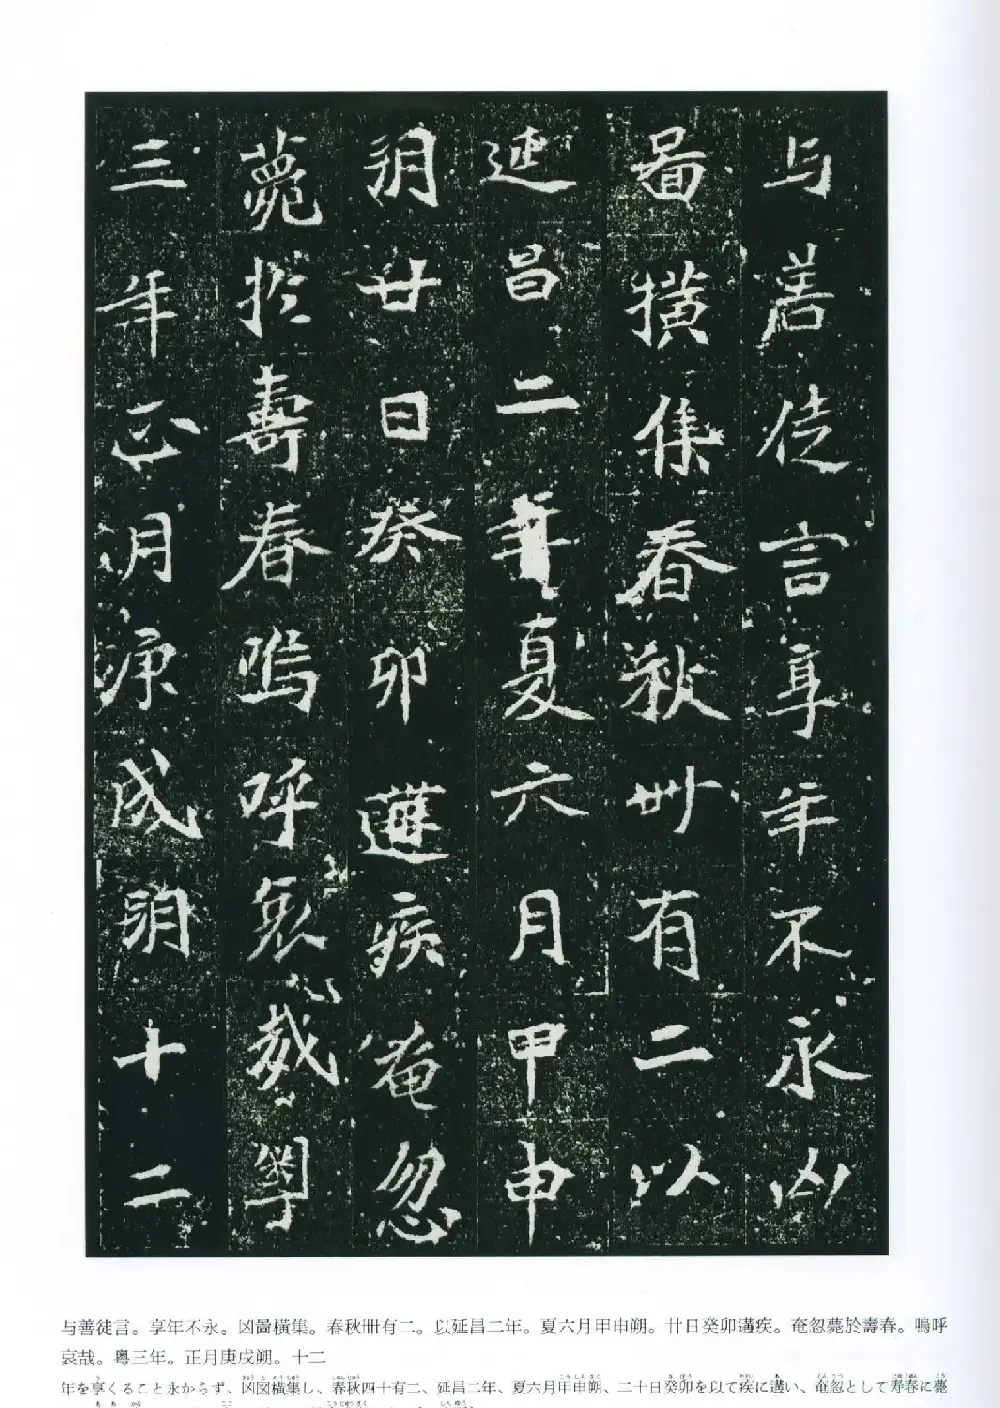 与善徒言享年不永凶
啚橫集春秋卌有二以
延昌二年夏六月甲申
朔廿日癸卯遘疾奄忽
薨於壽春嗚呼哀哉粤
三年正月庚戌朔十二
与善徒言。享年不永。凶啚橫集。春秋卌有二。以延昌二年。夏六月甲申朔。廿日癸卯遘疾。奄忽薨於壽春。嗚呼
哀哉。粤三年。正月庚戌朔。十二
年を享くること永からず、凶図橫集し、春秋四十有二、延昌二年、夏六月甲申朔、二十日癸卯を以て疾に遘い、奄忽として寿春に薨